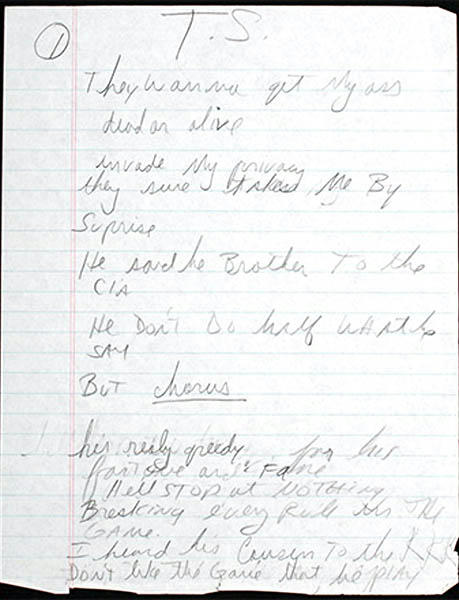 1
T.S.
They wanna get My ass
dead or alive
invade My privacy
they sure Me By
Suprise
He said he Brother To the
CIA
He Don't Do half
SAY
But chorus
his really greedy for her
and Fame
Hell STOP at NOTHING
Breaking every Rule In The
GAME.
I heard his To the KKK
Don't like the Game that he play